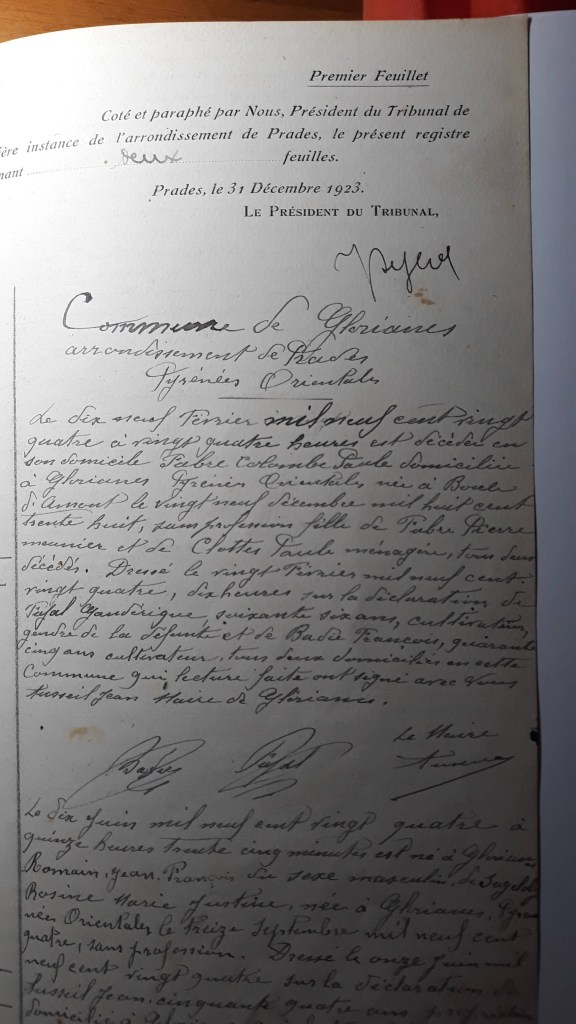 Premier Feuillet
Coté et paraphé par Nous, Président du Tribunal de
ère instance de l'arrondissement de Prades, le présent registre
nant deux feuilles.
Prades, le 31 Décembre 1923.
LE PRÉSIDENT DU TRIBUNAL,
Commune de Glorianes
arrondissement de Prades
Pyrénées Orientales
Le dix neuf Février mil neuf cent vingt
quatre à vingt quatre heures est décédée en
son domicile Fabre Colombe Paule domiciliée
à Glorianes Pyrénées Orientales née à Boule
d'Amont le vingt neuf décembre mil huit cent
trente huit, sans profession fille de Fabre Pierre
meunier et de Clottes Paule ménagère, tous deux
décédés. Dressé le vingt Février mil neuf cent
vingt quatre, dix heures sur la déclaration de
Pujal Gaudérique, soixante six ans, cultivateur,
gendre de la défunte et de Badie François, quarante
cinq ans cultivateur, tous deux domiciliés en cette
Commune qui lecture faite ont signé avec Nous
Tusseil Jean Maire de Glorianes.
Le Maire
Pujal
Le dix Juin mil neuf cent vingt quatre à
quinze heures trente cinq minutes est né à Glorianes
Romain, Jean, François du sexe masculin, de
Rosine Marie Justine, née à Glorianes, Pyré
nées Orientales le treize Septembre mil neuf cent
quatre, sans profession. Dressé le onze Juin mil
neuf cent vingt quatre sur la déclaration de
Tusseil Jean, cinquante quatre ans
domicilié à